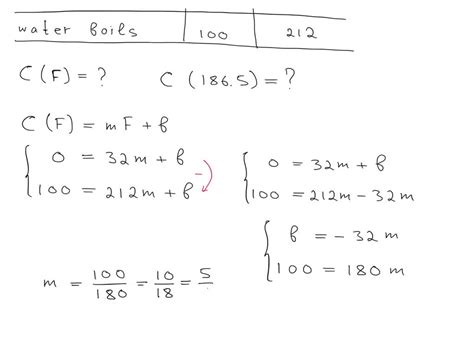 water boils 100 212
C(F) = ? C(186.5) = ?
C(F) = mF + b
0 = 32m + b
100 = 212m + b
−
0 = 32m + b
100 = 212m − 32m
b = −32m
100 = 180m
m = 100/180 = 10/18 = 5/